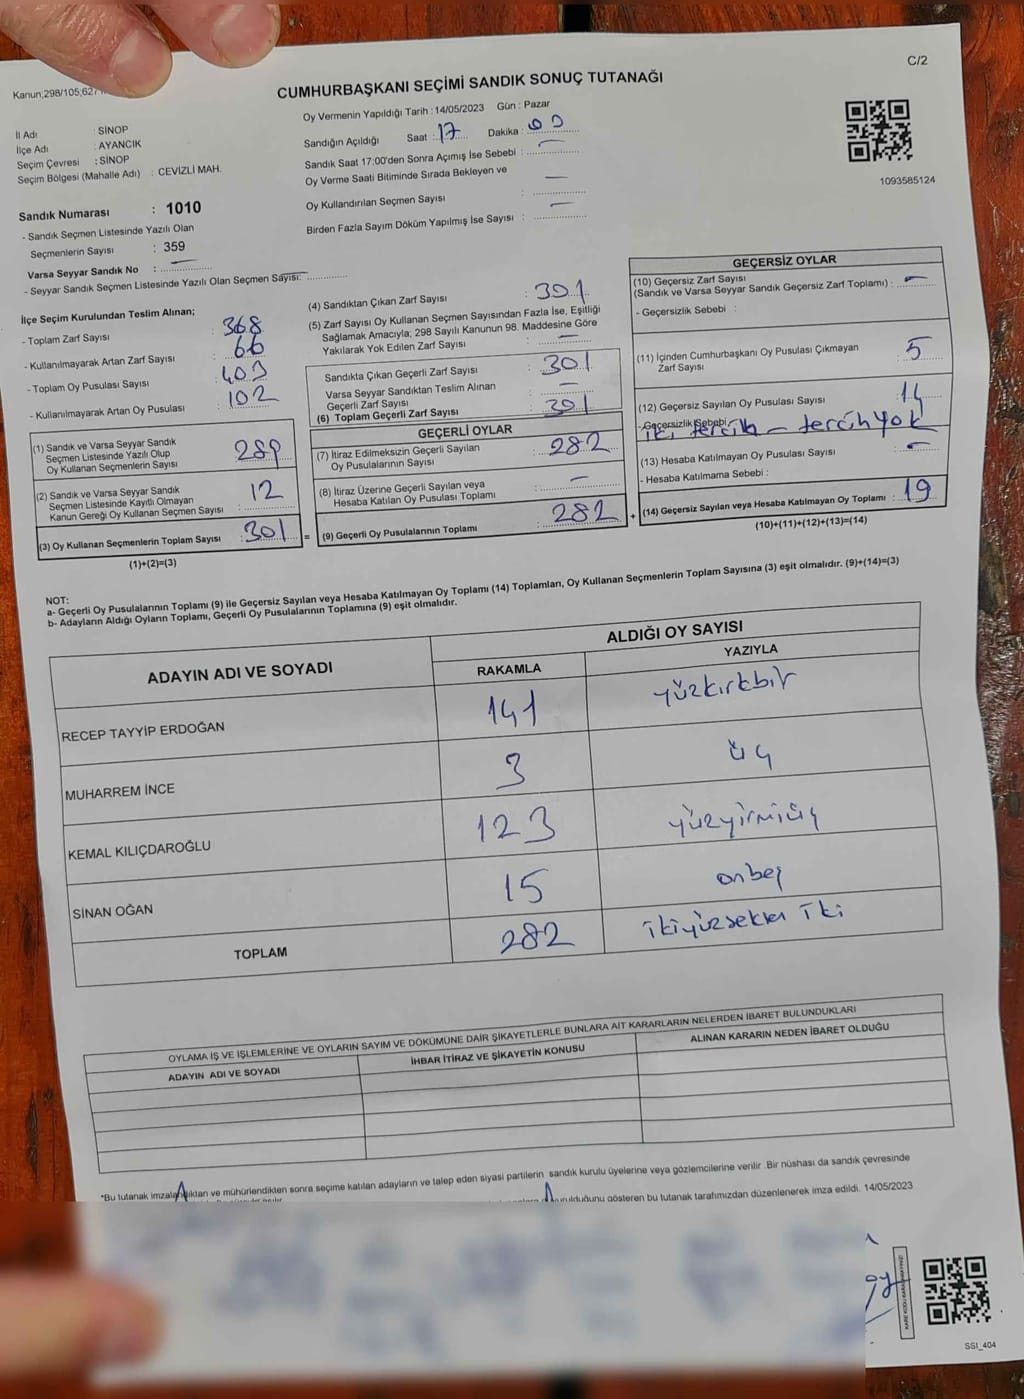 C/2
CUMHURBAŞKANI SEÇİMİ SANDIK SONUÇ TUTANAĞI
Oy Vermenin Yapıldığı Tarih : 14/05/2023 Gün : Pazar
İl Adı : SİNOP
İlçe Adı : AYANCIK
Seçim Çevresi : SİNOP
Seçim Bölgesi (Mahalle Adı) : CEVİZLİ MAH.
Sandık Numarası : 1010
- Sandık Seçmen Listesinde Yazılı Olan
Seçmenlerin Sayısı : 359
Varsa Seyyar Sandık No : —
- Seyyar Sandık Seçmen Listesinde Yazılı Olan Seçmen Sayısı: —
Sandığın Açıldığı Saat : 17 Dakika : 00
Sandık Saat 17:00'den Sonra Açımış İse Sebebi : —
Oy Verme Saati Bitiminde Sırada Bekleyen ve
Oy Kullandırılan Seçmen Sayısı : —
Birden Fazla Sayım Döküm Yapılmış İse Sayısı : —
1093585124
İlçe Seçim Kurulundan Teslim Alınan;
- Toplam Zarf Sayısı : 368
- Kullanılmayarak Artan Zarf Sayısı : 66
- Toplam Oy Pusulası Sayısı : 403
- Kullanılmayarak Artan Oy Pusulası : 102
(1) Sandık ve Varsa Seyyar Sandık
Seçmen Listesinde Yazılı Olup
Oy Kullanan Seçmenlerin Sayısı : 289
(2) Sandık ve Varsa Seyyar Sandık
Seçmen Listesinde Kayıtlı Olmayan
Kanun Gereği Oy Kullanan Seçmen Sayısı : 12
(3) Oy Kullanan Seçmenlerin Toplam Sayısı : 301
(1)+(2)=(3)
=
(4) Sandıktan Çıkan Zarf Sayısı : 301
(5) Zarf Sayısı Oy Kullanan Seçmen Sayısından Fazla İse, Eşitliği
Sağlamak Amacıyla; 298 Sayılı Kanunun 98. Maddesine Göre
Yakılarak Yok Edilen Zarf Sayısı : —
Sandıkta Çıkan Geçerli Zarf Sayısı : 301
Varsa Seyyar Sandıktan Teslim Alınan
Geçerli Zarf Sayısı : —
(6) Toplam Geçerli Zarf Sayısı : 301
GEÇERLİ OYLAR
(7) İtiraz Edilmeksizin Geçerli Sayılan
Oy Pusulalarının Sayısı : 282
(8) İtiraz Üzerine Geçerli Sayılan veya
Hesaba Katılan Oy Pusulası Toplamı : —
(9) Geçerli Oy Pusulalarının Toplamı : 282
+
GEÇERSİZ OYLAR
(10) Geçersiz Zarf Sayısı
(Sandık ve Varsa Seyyar Sandık Geçersiz Zarf Toplamı) : —
- Geçersizlik Sebebi :
(11) İçinden Cumhurbaşkanı Oy Pusulası Çıkmayan
Zarf Sayısı : 5
(12) Geçersiz Sayılan Oy Pusulası Sayısı : 14
- Geçersizlik Sebebi : iki tercih - tercih yok
(13) Hesaba Katılmayan Oy Pusulası Sayısı : —
- Hesaba Katılmama Sebebi :
(14) Geçersiz Sayılan veya Hesaba Katılmayan Oy Toplamı : 19
(10)+(11)+(12)+(13)=(14)
NOT:
a- Geçerli Oy Pusulalarının Toplamı (9) ile Geçersiz Sayılan veya Hesaba Katılmayan Oy Toplamı (14) Toplamları, Oy Kullanan Seçmenlerin Toplam Sayısına (3) eşit olmalıdır. (9)+(14)=(3)
b- Adayların Aldığı Oyların Toplamı, Geçerli Oy Pusulalarının Toplamına (9) eşit olmalıdır.
ADAYIN ADI VE SOYADI
ALDIĞI OY SAYISI
RAKAMLA YAZIYLA
RECEP TAYYİP ERDOĞAN 141 yüzkırkbir
MUHARREM İNCE 3 üç
KEMAL KILIÇDAROĞLU 123 yüzyirmiüç
SİNAN OĞAN 15 onbeş
TOPLAM 282 ikiyüzseksen iki
OYLAMA İŞ VE İŞLEMLERİNE VE OYLARIN SAYIM VE DÖKÜMÜNE DAİR ŞİKAYETLERLE BUNLARA AİT KARARLARIN NELERDEN İBARET BULUNDUKLARI
ADAYIN ADI VE SOYADI İHBAR İTİRAZ VE ŞİKAYETİN KONUSU ALINAN KARARIN NEDEN İBARET OLDUĞU
*Bu tutanak imzalandıktan ve mühürlendikten sonra seçime katılan adayların ve talep eden siyasi partilerin sandık kurulu üyelerine veya gözlemcilerine verilir .Bir nüshası da sandık çevresinde
bu tutanak tarafımızdan düzenlenerek imza edildi. 14/05/2023
SSI_404